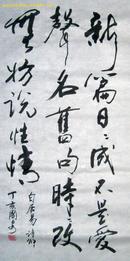 新篇日日成不是愛
聲名舊句時時改
無妨說性情
白居易詩
丁亥